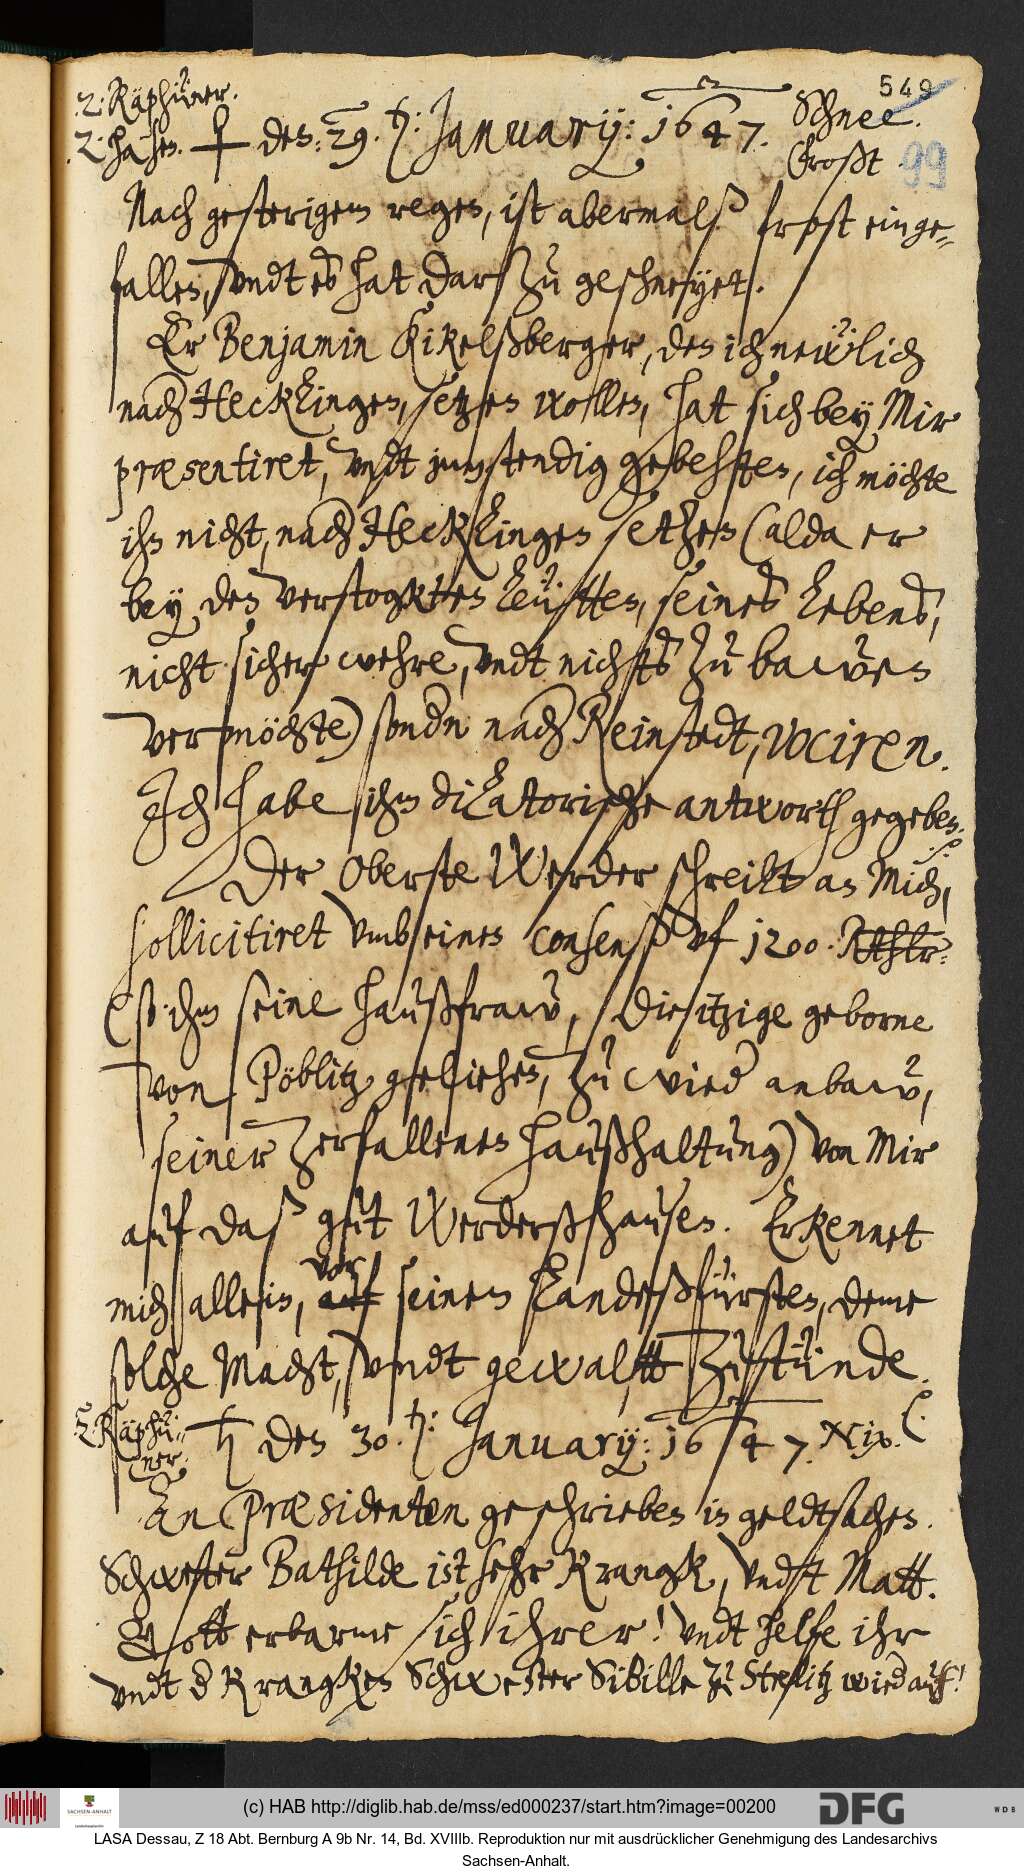 2: Räphüner.
2: hasen.
♀ den: 29. Januarij: 1647.
Schnee.
Großt
549
99
Nach gesterigem regen, ist abermalß frost einge=
fallen, vndt es hat darzu geschneyet.
Er Benjamin Kikelßberger, den ich newlich
nach Hecklingen, setzen wollen, hat sich bey Mir
præsentiret, vndt jnstendig gebehten, ich möchte
ihn nicht, nach Hecklingen setzen (alda er
bey den verstogkten leütten, seines lebens,
nicht sicher wehre, vndt nichts zu bawen
vermöchte) sondn nach Reinstedt, vociren.
Ich habe ihm dilatorische antwortt gegeben.
Der Oberste Werder schreibt an Mich,
sollicitiret vmb einen consenß vf 1200 Rthlr:
(so ihm seine haußfraw, die itzige geborne
von Pöblitz geliehen, zu wied anbaw,
seiner zerfallenen haußhaltung) von Mir
auf daß gut Werderßhausen. Erkennet
mich allein, vor seinen Landeßfürsten, deme
solche Macht, vndt gewalt zustünde.
2. Räphü=
ner.
♄ den 30. Januarij: 1647. Nix.
An Præsidenten geschrieben in geldtsachen.
Schwester Bathilde ist sehr Krangk, vndt Matt.
Gott erbarme sich ihrer! vndt helfe ihr
vndt d Krangken Schwester Sibille zu Strelitz wied auf!
(c) HAB http://diglib.hab.de/mss/ed000237/start.htm?image=00200
SACHSEN-ANHALT
DFG
WDB
LASA Dessau, Z 18 Abt. Bernburg A 9b Nr. 14, Bd. XVIIIb. Reproduktion nur mit ausdrücklicher Genehmigung des Landesarchivs
Sachsen-Anhalt.